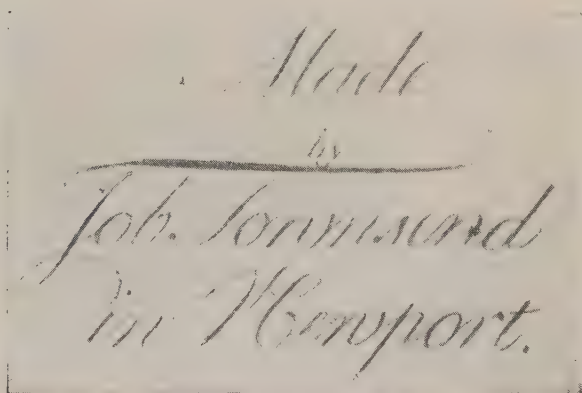 Made
by
Job. Townsend
in Newport.